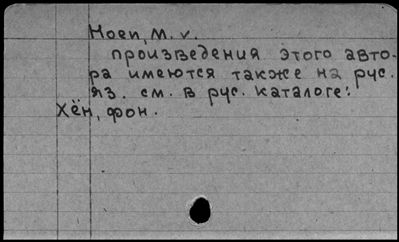 Hoen, M. v.
произведения этого авто-
ра имеются также на рус.
яз. см. в рус. каталоге:
Хён, фон.